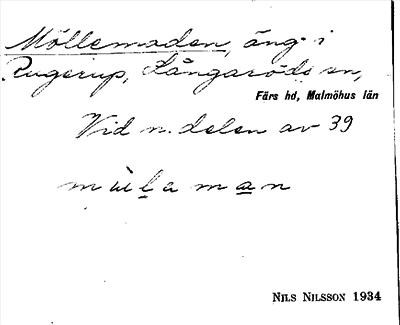 Möllemaden, äng i
Rugerup, Långaröds sn,
Färs hd, Malmöhus län
Vid n. delen av 39
NILS NILSSON 1934